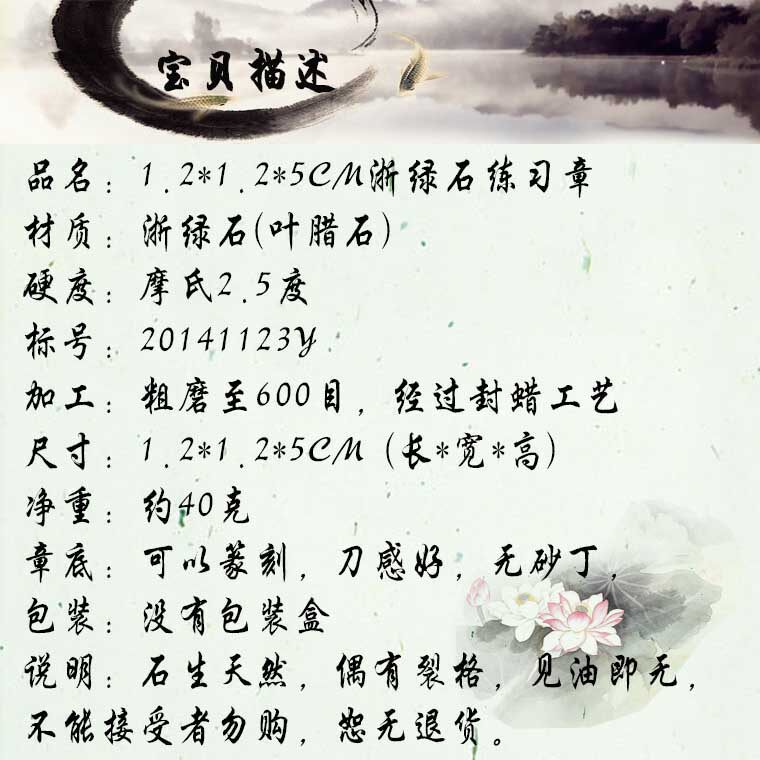 宝贝描述
品名：1.2*1.2*5CM浙绿石练习章
材质：浙绿石(叶腊石)
硬度：摩氏2.5度
标号：20141123Y
加工：粗磨至600目，经过封蜡工艺
尺寸：1.2*1.2*5CM (长*宽*高)
净重：约40克
章底：可以篆刻，刀感好，无砂丁，
包装：没有包装盒
说明：石生天然，偶有裂格，见油即无，
不能接受者勿购，恕无退货。